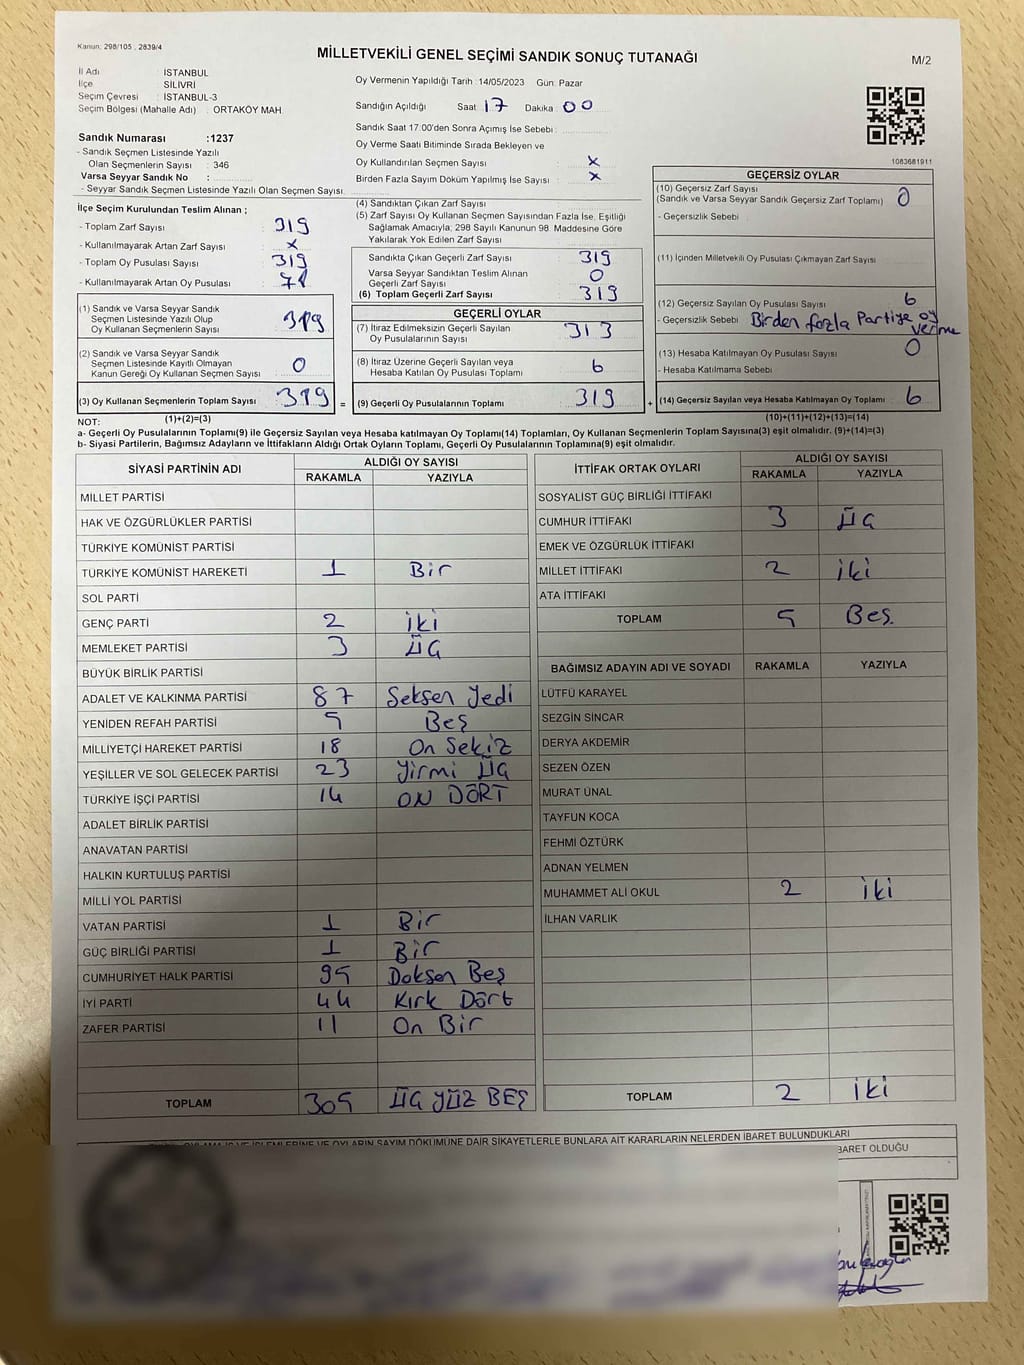 Kanun: 298/105 , 2839/4
MİLLETVEKİLİ GENEL SEÇİMİ SANDIK SONUÇ TUTANAĞI
M/2
İl Adı : İSTANBUL
İlçe : SİLİVRİ
Seçim Çevresi : İSTANBUL-3
Seçim Bölgesi (Mahalle Adı) : ORTAKÖY MAH.
Sandık Numarası :1237
- Sandık Seçmen Listesinde Yazılı
Olan Seçmenlerin Sayısı : 346
Varsa Seyyar Sandık No :
- Seyyar Sandık Seçmen Listesinde Yazılı Olan Seçmen Sayısı:
Oy Vermenin Yapıldığı Tarih :14/05/2023 Gün: Pazar
Sandığın Açıldığı Saat 17 Dakika : 00
Sandık Saat 17:00'den Sonra Açımış İse Sebebi :
Oy Verme Saati Bitiminde Sırada Bekleyen ve
Oy Kullandırılan Seçmen Sayısı : X
Birden Fazla Sayım Döküm Yapılmış İse Sayısı : X
1083681911
İlçe Seçim Kurulundan Teslim Alınan ;
- Toplam Zarf Sayısı : 319
- Kullanılmayarak Artan Zarf Sayısı : X
- Toplam Oy Pusulası Sayısı : 319
- Kullanılmayarak Artan Oy Pusulası :
(1) Sandık ve Varsa Seyyar Sandık
Seçmen Listesinde Yazılı Olup
Oy Kullanan Seçmenlerin Sayısı : 319
(2) Sandık ve Varsa Seyyar Sandık
Seçmen Listesinde Kayıtlı Olmayan
Kanun Gereği Oy Kullanan Seçmen Sayısı : 0
(3) Oy Kullanan Seçmenlerin Toplam Sayısı : 319 =
(1)+(2)=(3)
(4) Sandıktan Çıkan Zarf Sayısı :
(5) Zarf Sayısı Oy Kullanan Seçmen Sayısından Fazla İse, Eşitliği
Sağlamak Amacıyla; 298 Sayılı Kanunun 98. Maddesine Göre
Yakılarak Yok Edilen Zarf Sayısı :
Sandıkta Çıkan Geçerli Zarf Sayısı : 319
Varsa Seyyar Sandıktan Teslim Alınan
Geçerli Zarf Sayısı : 0
(6) Toplam Geçerli Zarf Sayısı : 319
GEÇERLİ OYLAR
(7) İtiraz Edilmeksizin Geçerli Sayılan
Oy Pusulalarının Sayısı : 313
(8) İtiraz Üzerine Geçerli Sayılan veya
Hesaba Katılan Oy Pusulası Toplamı : 6
(9) Geçerli Oy Pusulalarının Toplamı : 319 +
GEÇERSİZ OYLAR
(10) Geçersiz Zarf Sayısı
(Sandık ve Varsa Seyyar Sandık Geçersiz Zarf Toplamı) : 0
- Geçersizlik Sebebi :
(11) İçinden Milletvekili Oy Pusulası Çıkmayan Zarf Sayısı :
(12) Geçersiz Sayılan Oy Pusulası Sayısı : 6
- Geçersizlik Sebebi : Birden fazla Partiye oy
verme
(13) Hesaba Katılmayan Oy Pusulası Sayısı : 0
- Hesaba Katılmama Sebebi :
(14) Geçersiz Sayılan veya Hesaba Katılmayan Oy Toplamı : 6
(10)+(11)+(12)+(13)=(14)
NOT:
a- Geçerli Oy Pusulalarının Toplamı(9) ile Geçersiz Sayılan veya Hesaba katılmayan Oy Toplamı(14) Toplamları, Oy Kullanan Seçmenlerin Toplam Sayısına(3) eşit olmalıdır. (9)+(14)=(3)
b- Siyasi Partilerin, Bağımsız Adayların ve İttifakların Aldığı Ortak Oyların Toplamı, Geçerli Oy Pusulalarının Toplamına(9) eşit olmalıdır.
SİYASİ PARTİNİN ADI ALDIĞI OY SAYISI
RAKAMLA YAZIYLA
MİLLET PARTİSİ
HAK VE ÖZGÜRLÜKLER PARTİSİ
TÜRKİYE KOMÜNİST PARTİSİ
TÜRKİYE KOMÜNİST HAREKETİ 1 Bir
SOL PARTİ
GENÇ PARTİ 2 iki
MEMLEKET PARTİSİ 3 ÜÇ
BÜYÜK BİRLİK PARTİSİ
ADALET VE KALKINMA PARTİSİ 87 Seksen Yedi
YENİDEN REFAH PARTİSİ 5 Beş
MİLLİYETÇİ HAREKET PARTİSİ 18 On Sekiz
YEŞİLLER VE SOL GELECEK PARTİSİ 23 Yirmi ÜÇ
TÜRKİYE İŞÇİ PARTİSİ 14 ON DÖRT
ADALET BİRLİK PARTİSİ
ANAVATAN PARTİSİ
HALKIN KURTULUŞ PARTİSİ
MİLLİ YOL PARTİSİ
VATAN PARTİSİ 1 Bir
GÜÇ BİRLİĞİ PARTİSİ 1 Bir
CUMHURİYET HALK PARTİSİ 95 Doksen Beş
İYİ PARTİ 44 Kırk Dört
ZAFER PARTİSİ 11 On Bir
TOPLAM 305 ÜÇ YÜZ BEŞ
İTTİFAK ORTAK OYLARI ALDIĞI OY SAYISI
RAKAMLA YAZIYLA
SOSYALİST GÜÇ BİRLİĞİ İTTİFAKI
CUMHUR İTTİFAKI 3 ÜÇ
EMEK VE ÖZGÜRLÜK İTTİFAKI
MİLLET İTTİFAKI 2 iki
ATA İTTİFAKI
TOPLAM 5 Beş
BAĞIMSIZ ADAYIN ADI VE SOYADI RAKAMLA YAZIYLA
LÜTFÜ KARAYEL
SEZGİN SİNCAR
DERYA AKDEMİR
SEZEN ÖZEN
MURAT ÜNAL
TAYFUN KOCA
FEHMİ ÖZTÜRK
ADNAN YELMEN
MUHAMMET ALİ OKUL 2 iki
İLHAN VARLIK
TOPLAM 2 iki
OYLAMA İŞ VE İŞLEMLERİNE VE OYLARIN SAYIM DÖKÜMÜNE DAİR ŞİKAYETLERLE BUNLARA AİT KARARLARIN NELERDEN İBARET BULUNDUKLARI
BARET OLDUĞU